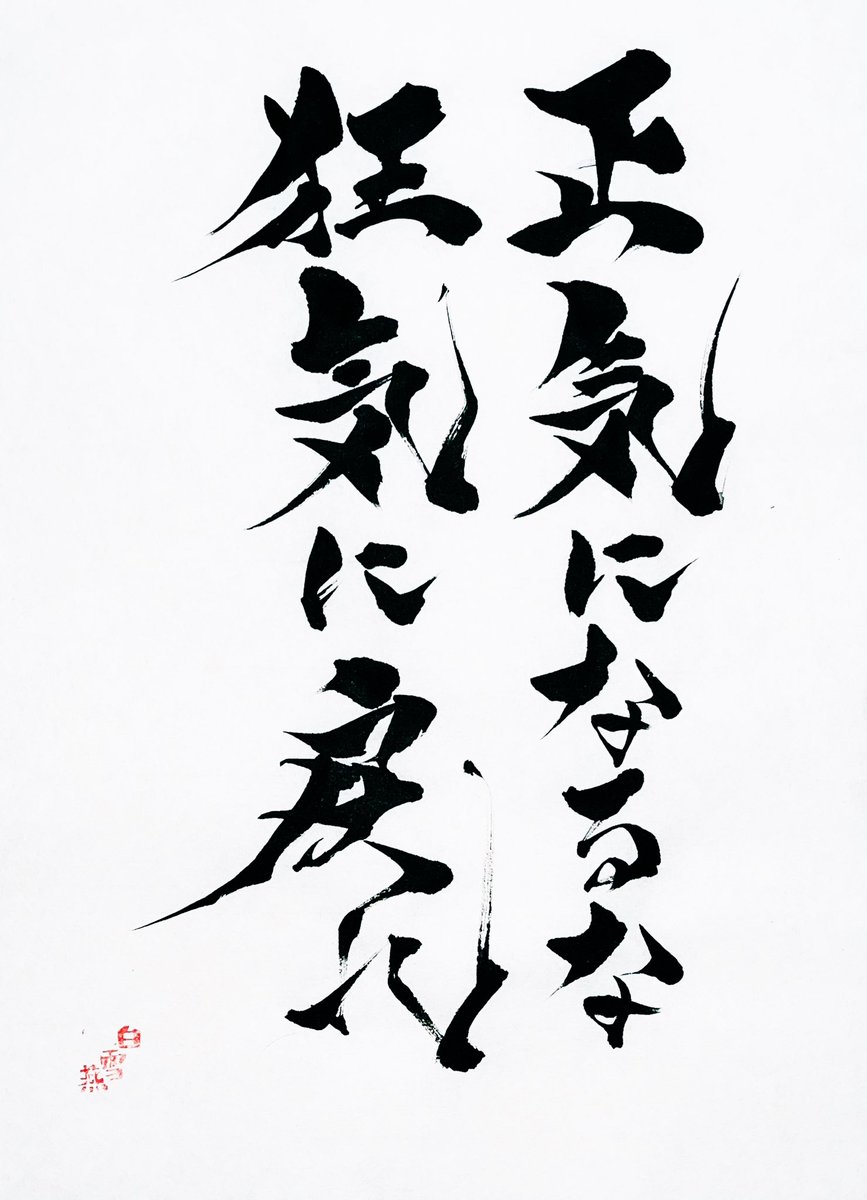 正気になるな
狂気に戻れ
白雪燕